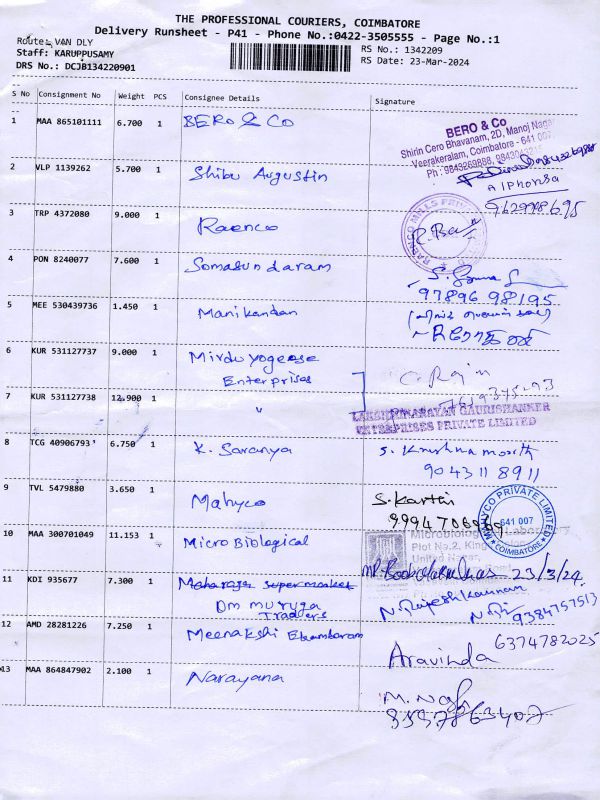 THE PROFESSIONAL COURIERS, COIMBATORE
Delivery Runsheet - P41 - Phone No.:0422-3505555 - Page No.:1
Route: VAN DLY
RS No.: 1342209
Staff: KARUPPUSAMY
RS Date: 23-Mar-2024
DRS No.: DCJB134220901
S No Consignment No Weight PCS Consignee Details Signature
1 MAA 865101111 6.700 1 BERO & Co
BERO & Co
Shirin Cero Bhavanam, 2D, Manoj Nagar
Veerakeralam, Coimbatore - 641 007
Ph : 9843269888,
2 VLP 1139262 5.700 1 Shibu Augustin
Alphonsa
3 TRP 4372080 9.000 1 Raenco
RAENCO MILLS
4 PON 8240077 7.600 1 Somasundaram
97896 98195
5 MEE 530439736 1.450 1 Manikandan
6 KUR 531127737 9.000 1 Mirdu yogeese
Enterprises
7 KUR 531127738 12.900 1 "
LAKSHMINARAYAN GAURISHANKER
ENTERPRISES PRIVATE LIMITED
8 TCG 40906793 6.750 1 K. Saranya
S. Krishna moorth
90431 18911
9 TVL 5479880 3.650 1 Mahyco
S. Karthi
MAHYCO PRIVATE LIMITED
641 007
COIMBATORE
10 MAA 300701049 11.153 1 Micro Biological
Microbiological Laboratory
Plot No.2,
United Nagar,
23/3/24
11 KDI 935677 7.300 1 Maharaja supermarket
Om muruga
Traders
N. Rajeshkannan
9384757513
12 AMD 28281226 7.250 1 Meenakshi Ekambaram
Aravinda 6374782025
13 MAA 864847902 2.100 1 Narayana